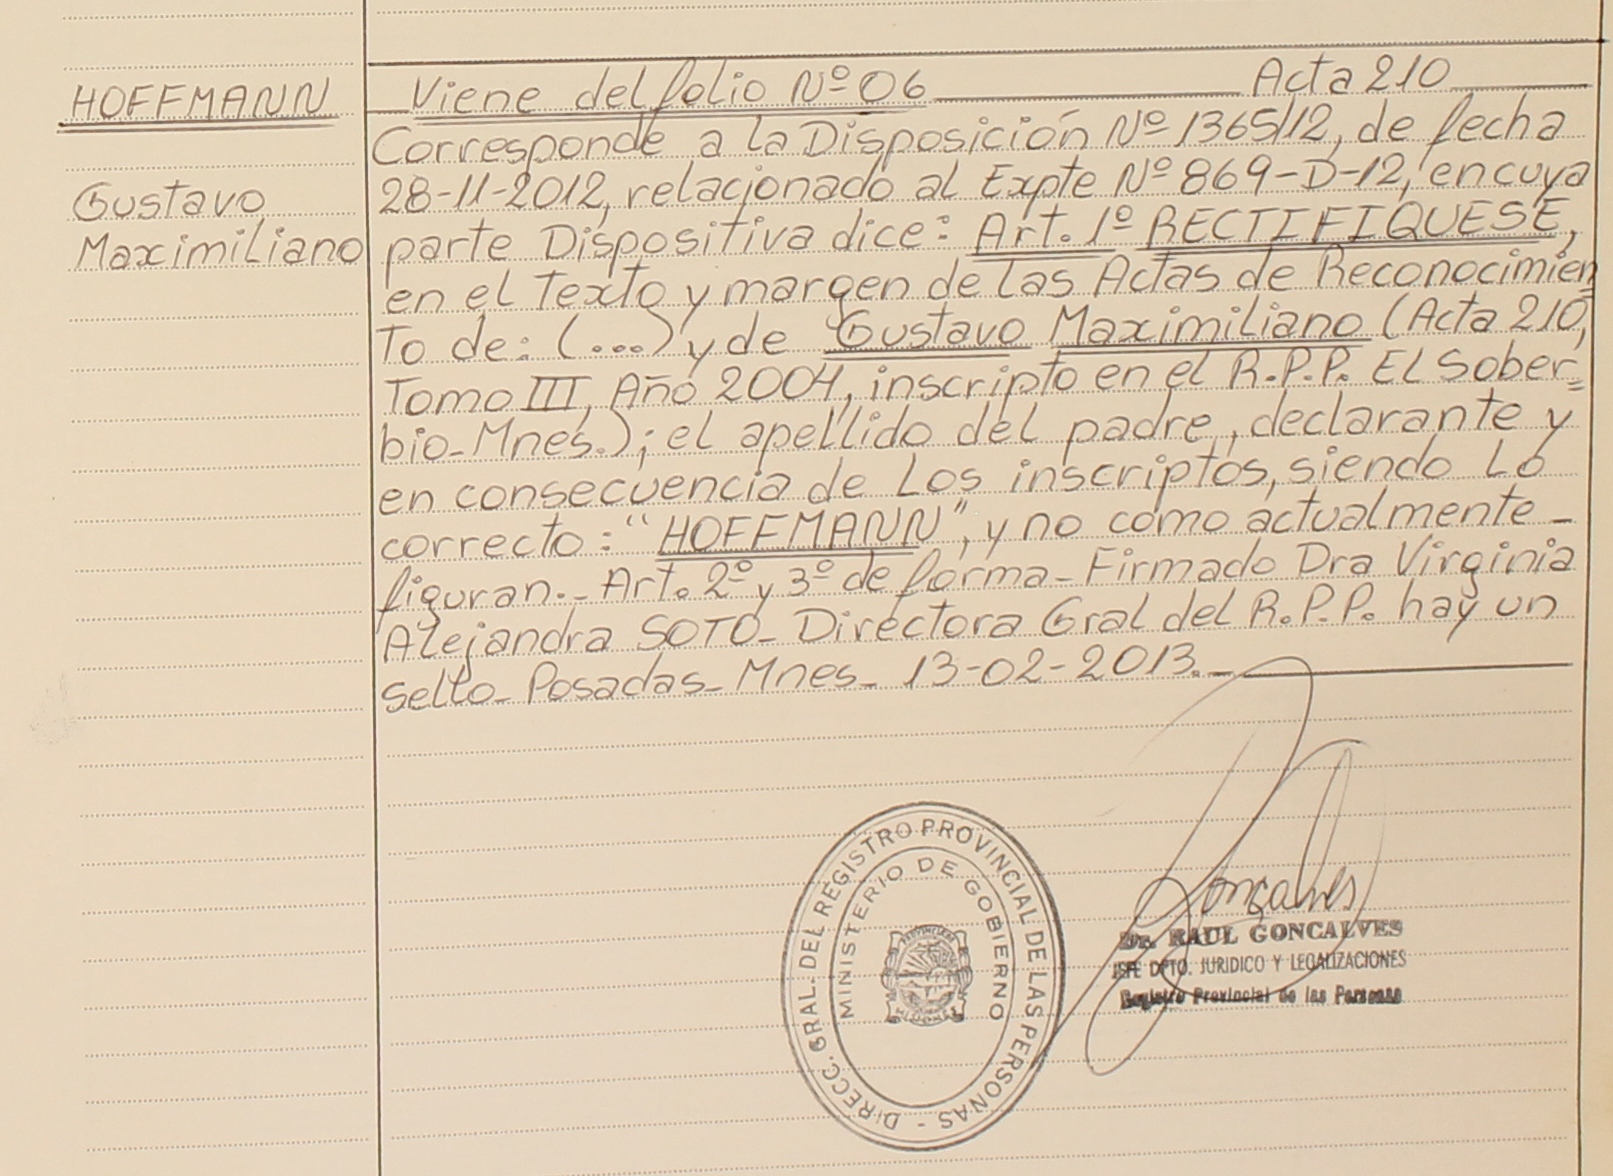 HOFFMANN
Gustavo
Maximiliano
Viene del folio Nº 06 Acta 210
Corresponde a la Disposición Nº 1365/12, de fecha
28-11-2012, relacionado al Expte Nº 869-D-12, en cuya
parte Dispositiva dice: Art. 1º RECTIFIQUESE,
en el Texto y margen de las Actas de Reconocimien=
To de: (...) y de Gustavo Maximiliano (Acta 210,
Tomo III, Año 2004, inscripto en el R.P.P. El Sober=
bio-Mnes.); el apellido del padre, declarante y
en consecuencia de Los inscriptos, siendo Lo
correcto: "HOFFMANN", y no como actualmente -
figuran.- Art. 2º y 3º de forma- Firmado Dra Virginia
Alejandra SOTO- Directora Gral del R.P.P. hay un
sello- Posadas- Mnes- 13-02-2013.-
DIRECC. GRAL. DEL REGISTRO PROVINCIAL DE LAS PERSONAS -
MINISTERIO DE GOBIERNO
MISIONES
Gonçalves
Dr. RAUL GONCALVES
JEFE DPTO. JURIDICO Y LEGALIZACIONES
Registro Provincial de las Personas